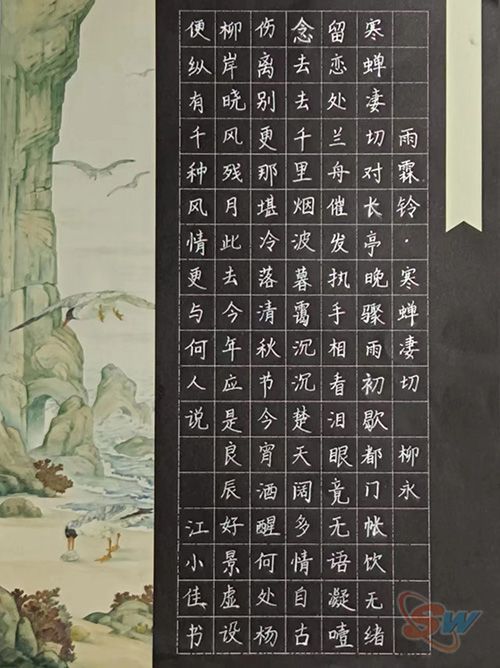 雨霖铃·寒蝉凄切 柳永
寒蝉凄切对长亭晚骤雨初歇都门帐饮无绪
留恋处兰舟催发执手相看泪眼竟无语凝噎
念去去千里烟波暮霭沉沉楚天阔多情自古
伤离别更那堪冷落清秋节今宵酒醒何处杨
柳岸晓风残月此去今年应是良辰好景虚设
便纵有千种风情更与何人说 江小佳书
SW